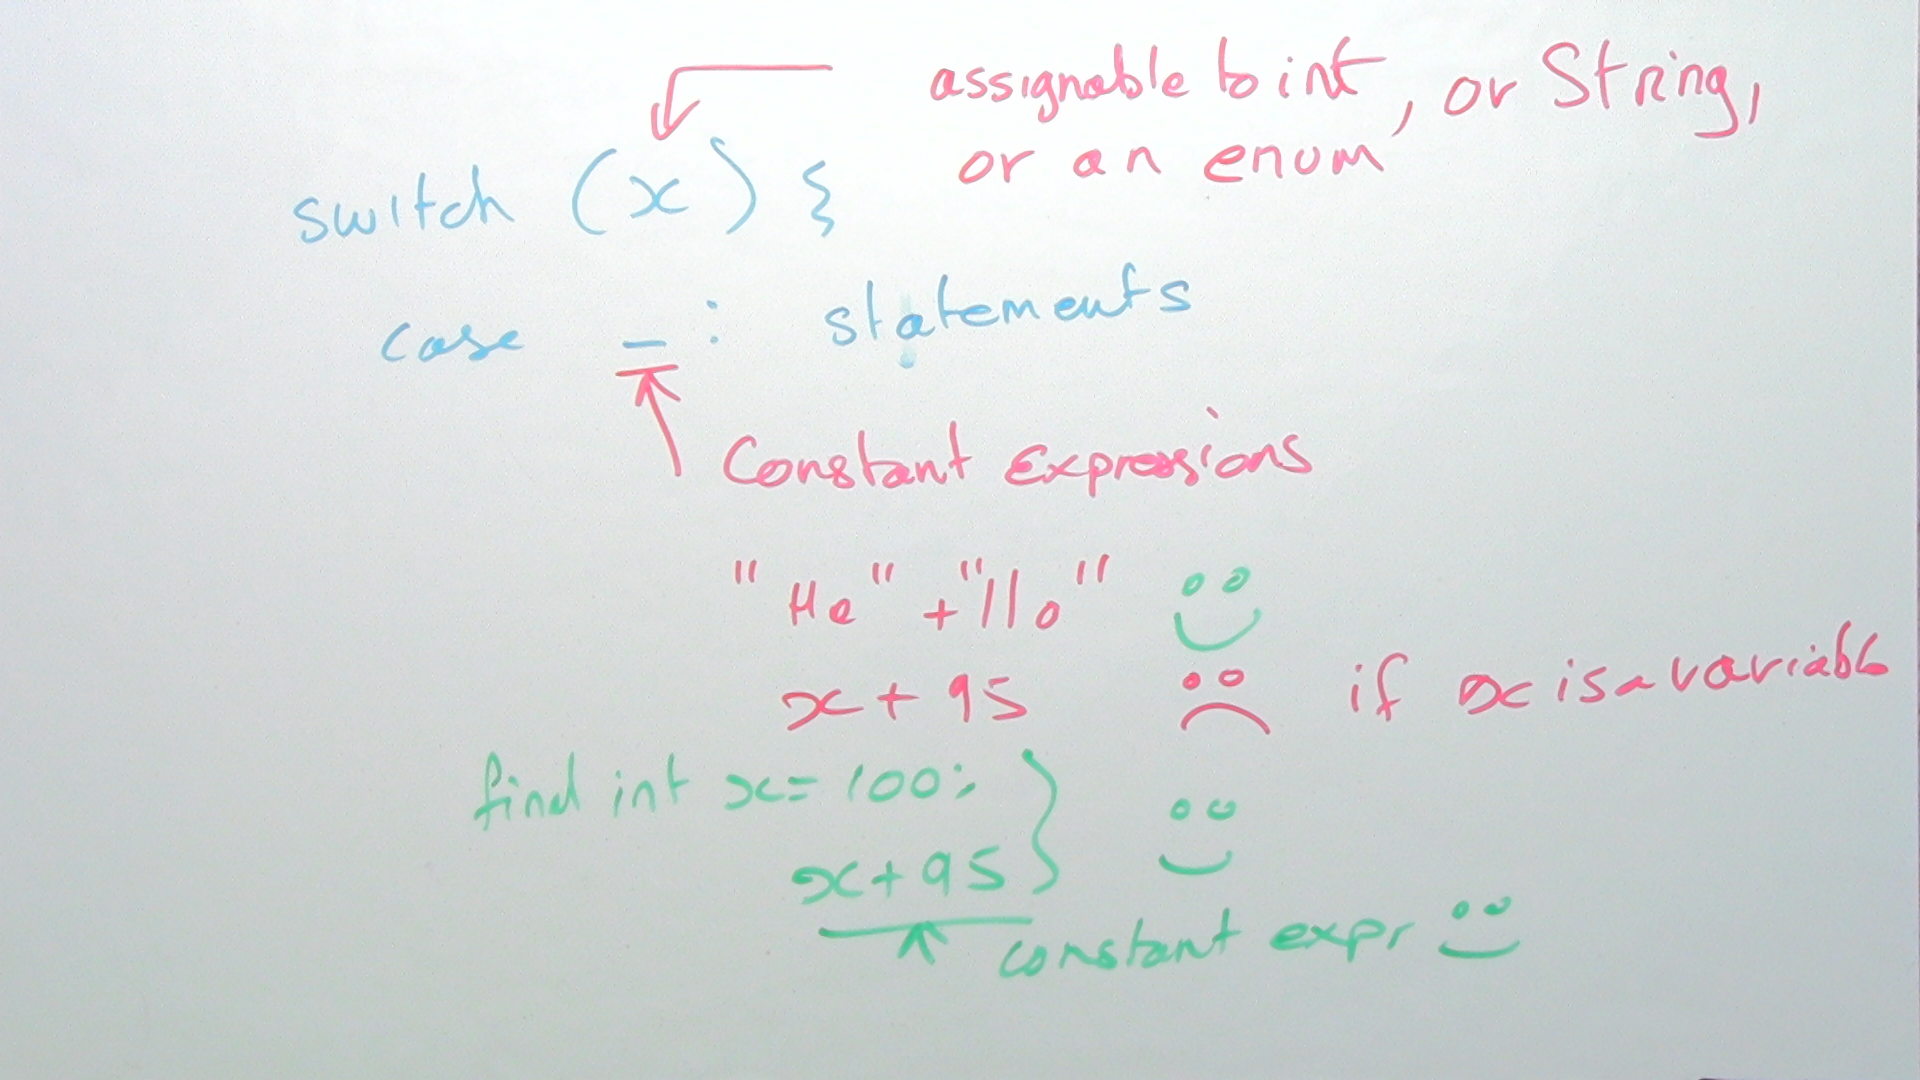 assignable to int, or String,
or an enum
switch (x) {
case _: statements
Constant Expressions
"He" + "llo"
x + 95 if x is a variable
final int x = 100;
x + 95
constant expr